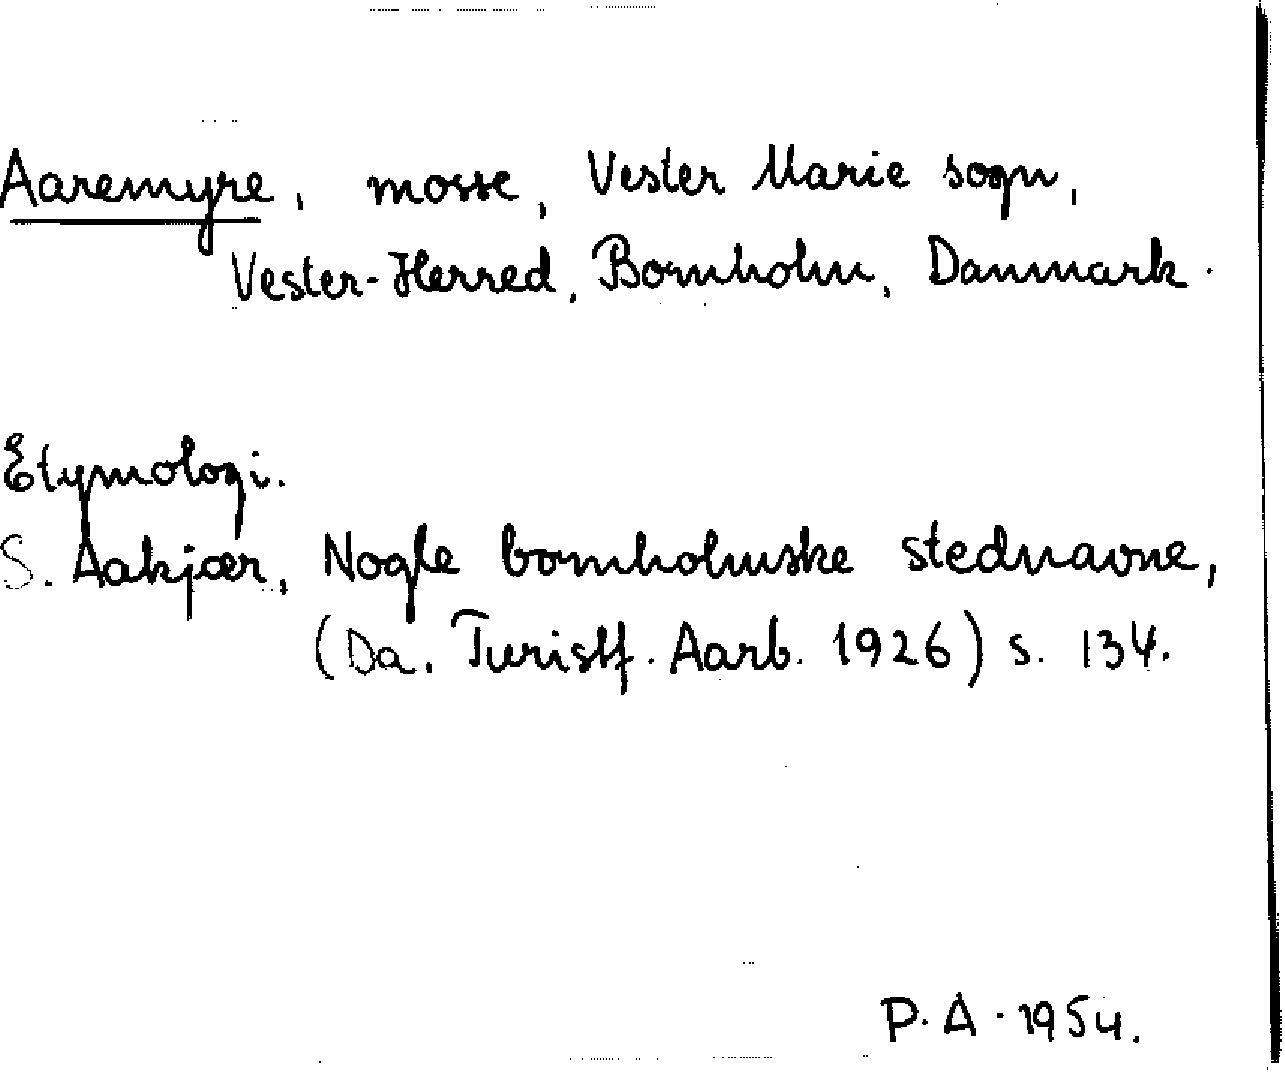 Aaremyre, mosse, Vester Marie sogn,
Vester-Herred, Bornholm, Danmark.
Etymologi.
S. Aakjær, Nogle bornholmske stednavne,
(Da. Turistf. Aarb. 1926) s. 134.
P.A. 1954.